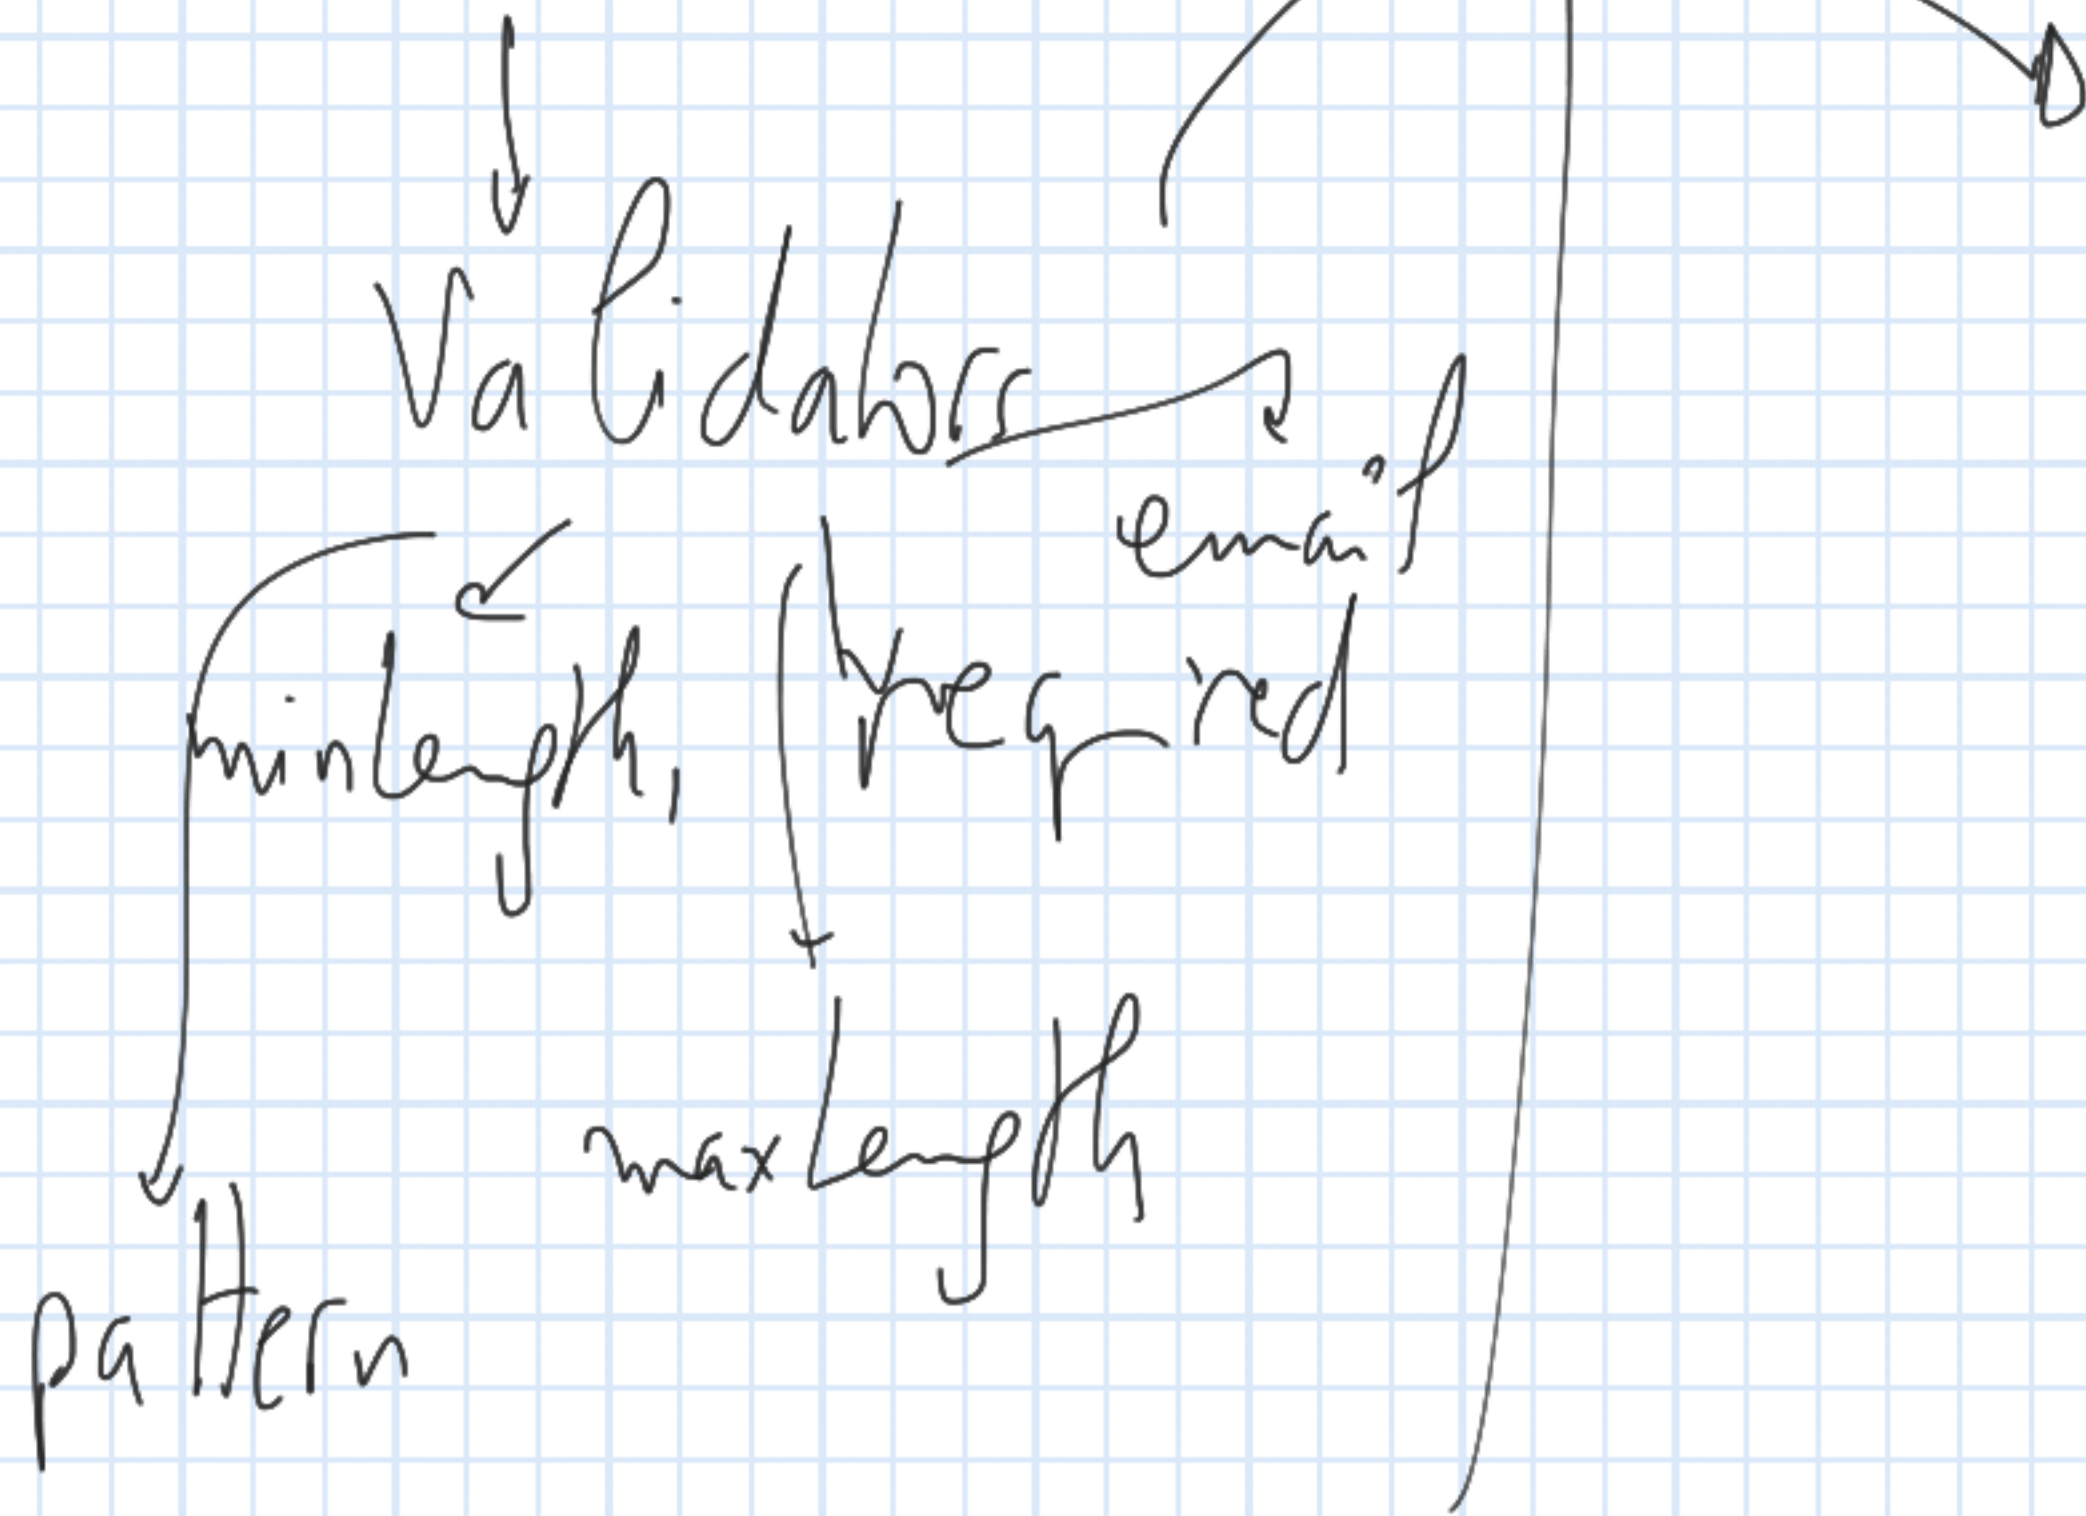 Validators
email
minLength, required
maxLength
pattern